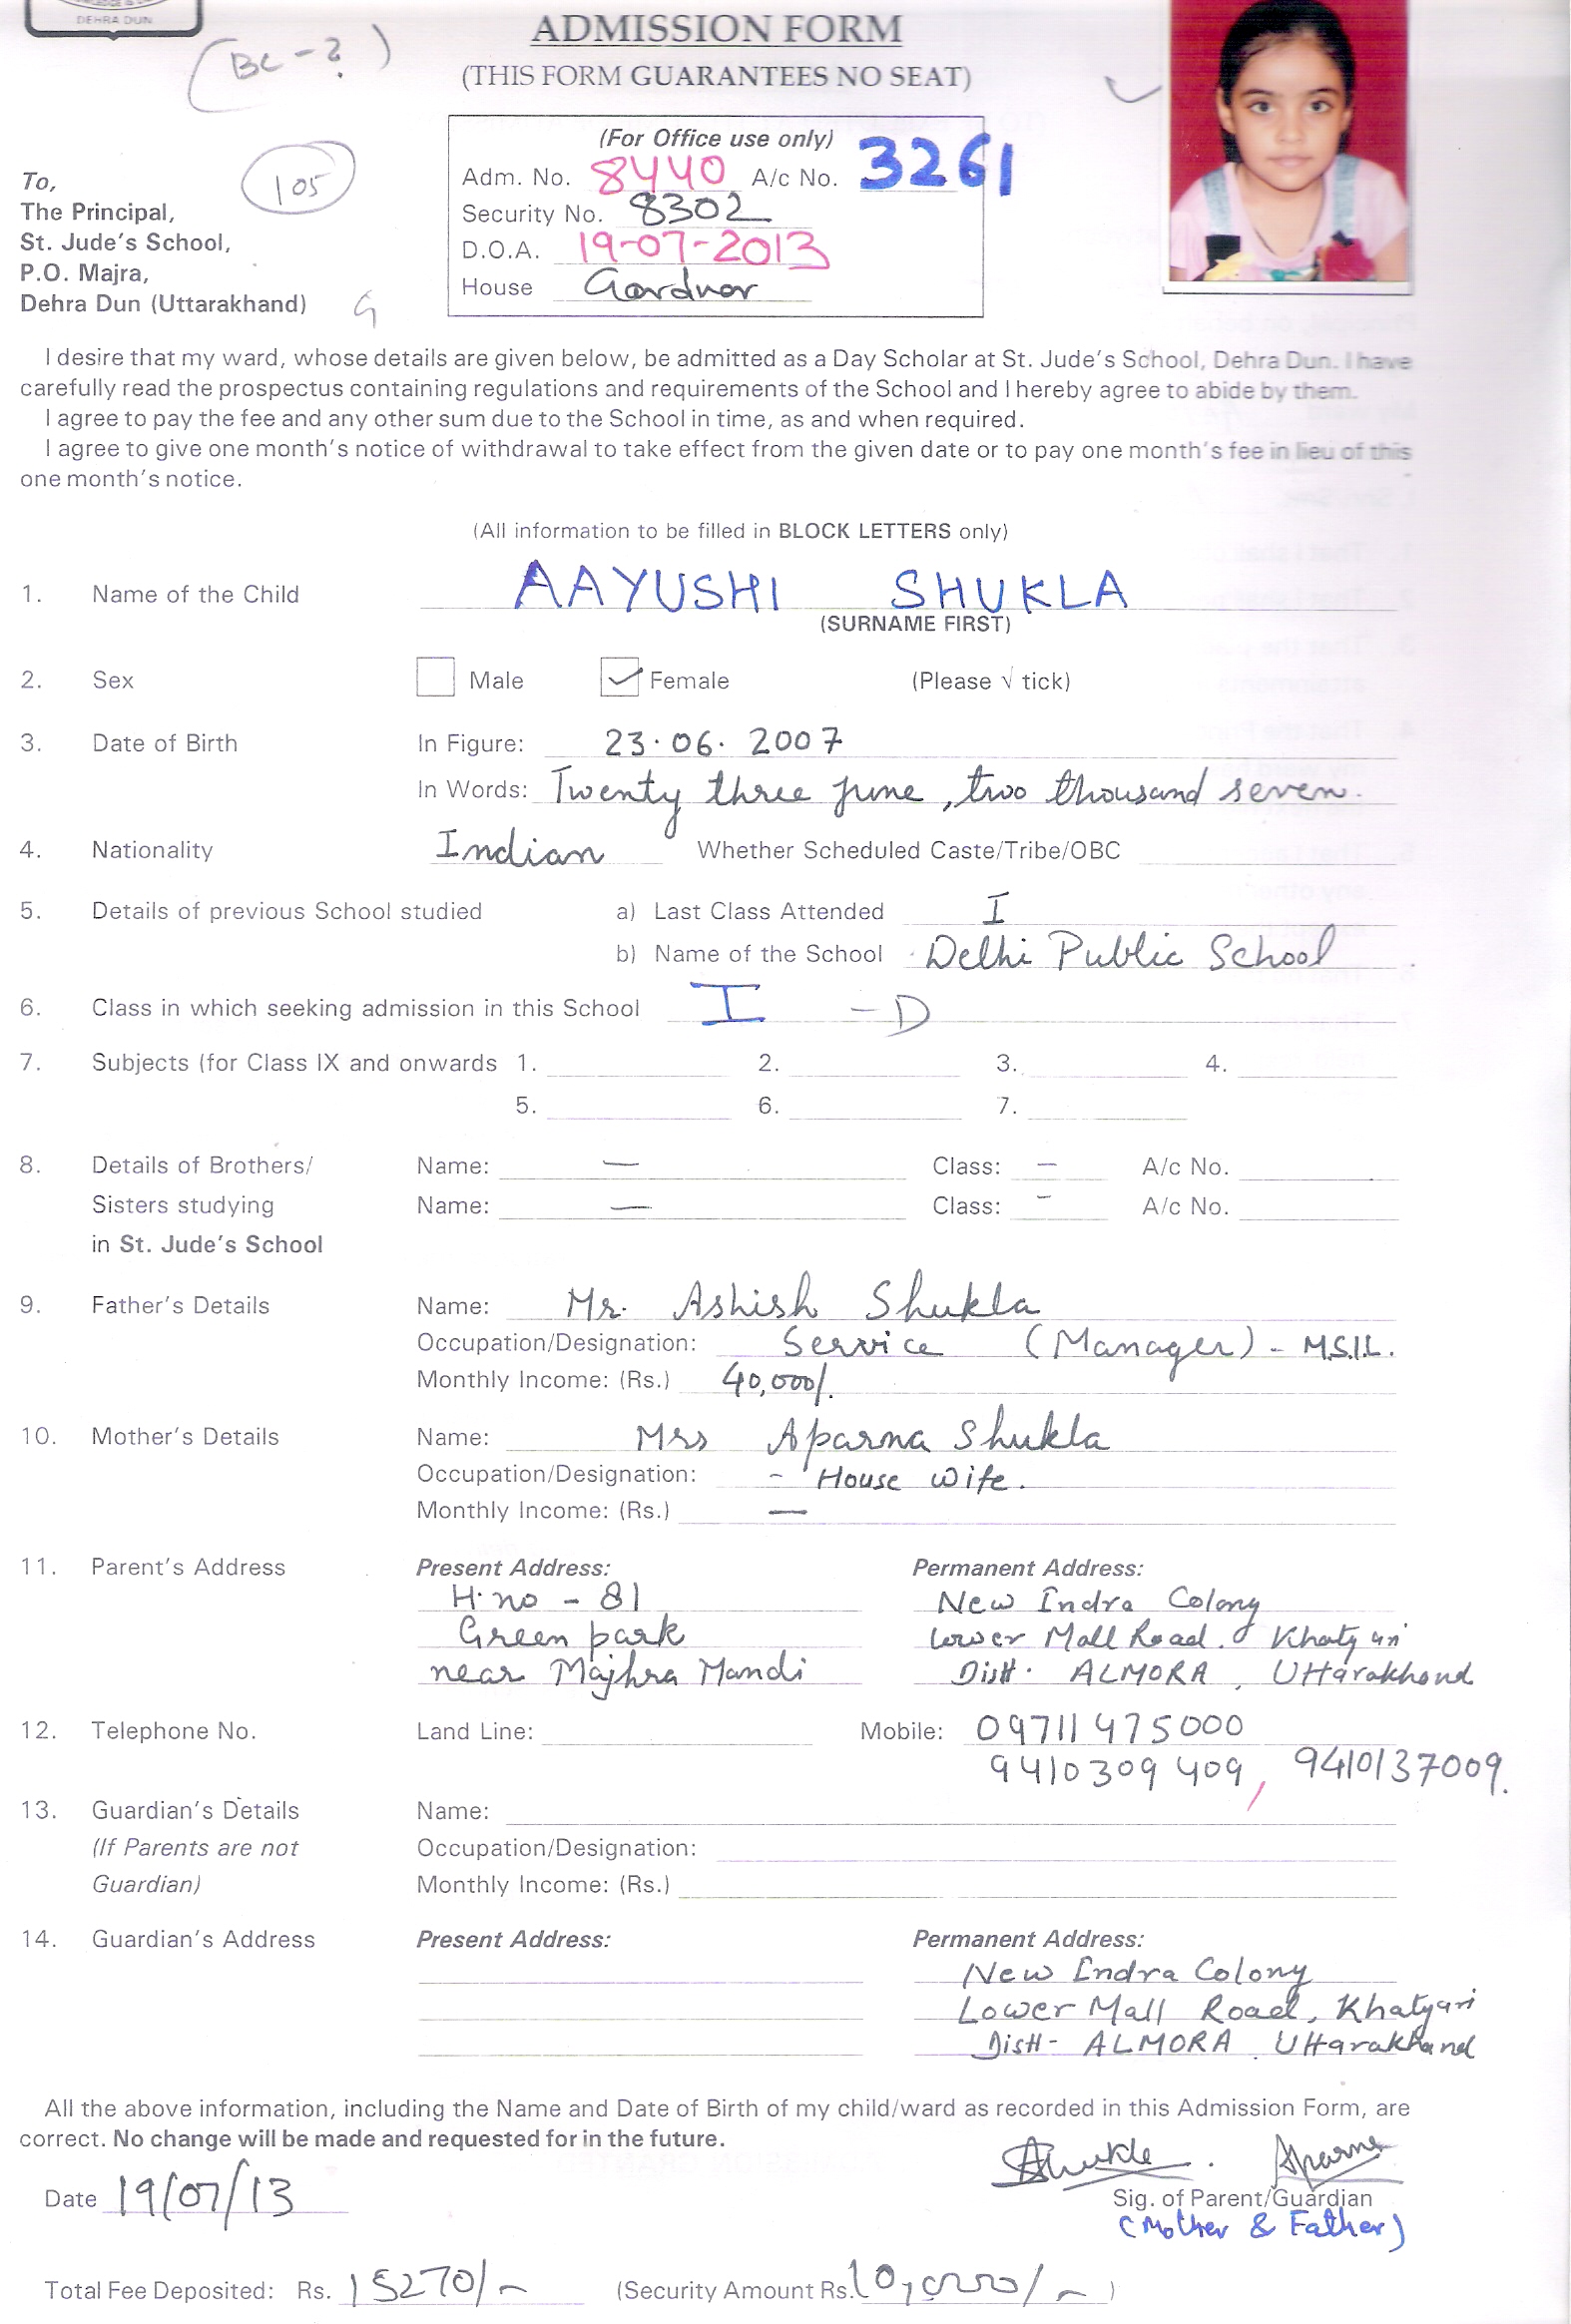 DEHRA DUN
ADMISSION FORM
(THIS FORM GUARANTEES NO SEAT)
(BC - ?)
(For Office use only)
Adm. No. 8440 A/c No. 3261
Security No. 8302
D.O.A. 19-07-2013
House Gardnor
105
To,
The Principal,
St. Jude's School,
P.O. Majra,
Dehra Dun (Uttarakhand) G
I desire that my ward, whose details are given below, be admitted as a Day Scholar at St. Jude's School, Dehra Dun. I have
carefully read the prospectus containing regulations and requirements of the School and I hereby agree to abide by them.
I agree to pay the fee and any other sum due to the School in time, as and when required.
I agree to give one month's notice of withdrawal to take effect from the given date or to pay one month's fee in lieu of this
one month's notice.
(All information to be filled in BLOCK LETTERS only)
1. Name of the Child AAYUSHI SHUKLA
(SURNAME FIRST)
2. Sex Male ✓ Female (Please √ tick)
3. Date of Birth In Figure: 23.06.2007
In Words: Twenty three june, two thousand seven.
4. Nationality Indian Whether Scheduled Caste/Tribe/OBC
5. Details of previous School studied a) Last Class Attended I
b) Name of the School Delhi Public School
6. Class in which seeking admission in this School I - D
7. Subjects (for Class IX and onwards 1. 2. 3. 4.
5. 6. 7.
8. Details of Brothers/ Name: — Class: — A/c No.
Sisters studying Name: — Class: - A/c No.
in St. Jude's School
9. Father's Details Name: Mr. Ashish Shukla
Occupation/Designation: Service (Manager) - M.S.I.L.
Monthly Income: (Rs.) 40,000/.
10. Mother's Details Name: Mrs Aparna Shukla
Occupation/Designation: - House wife.
Monthly Income: (Rs.) —
11. Parent's Address Present Address: Permanent Address:
H.no - 81 New Indra Colony
Green park Lower Mall Road. Khatyari
near Majhra Mandi Distt. ALMORA, Uttarakhand
12. Telephone No. Land Line: Mobile: 09711475000
9410309409, 9410137009.
13. Guardian's Details Name:
(If Parents are not Occupation/Designation:
Guardian) Monthly Income: (Rs.)
14. Guardian's Address Present Address: Permanent Address:
New Indra Colony
Lower Mall Road, Khatyari
Distt- ALMORA, Uttarakhand
All the above information, including the Name and Date of Birth of my child/ward as recorded in this Admission Form, are
correct. No change will be made and requested for in the future.
Shukla. Aparna
Date 19/07/13 Sig. of Parent/Guardian
(Mother & Father)
Total Fee Deposited: Rs. 15270/- (Security Amount Rs. 10,000/-)